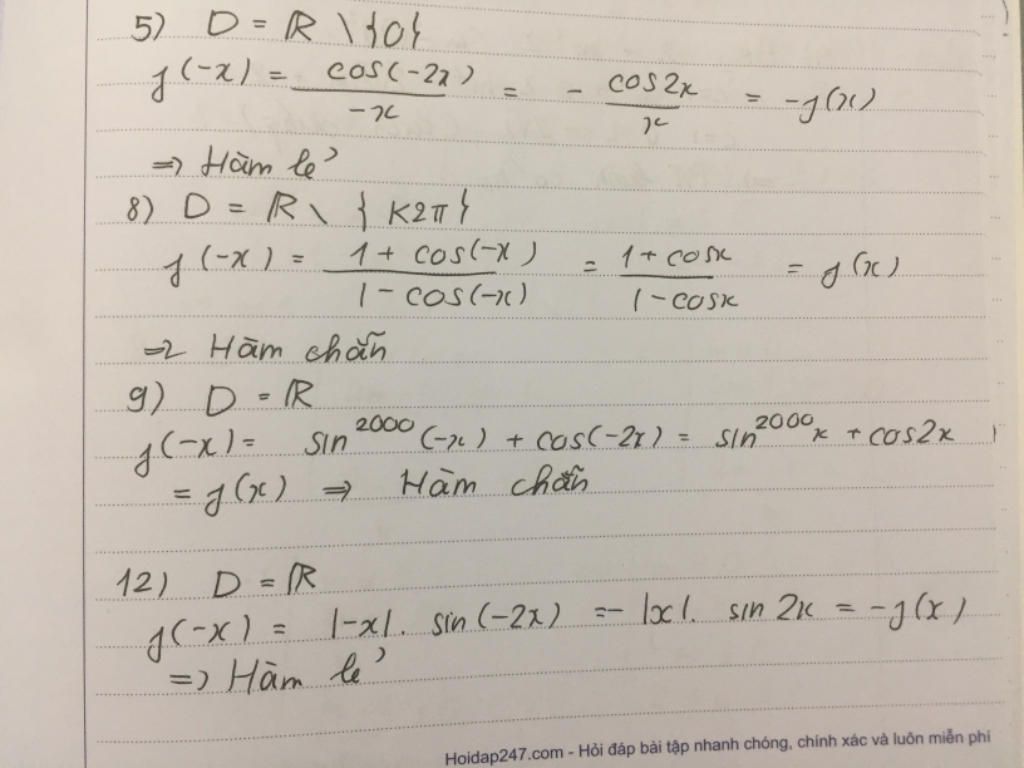 5) D = ℝ \ {0}
f(-x) = cos(-2x)/-x = - cos2x/x = -f(x)
=> Hàm lẻ
8) D = ℝ \ {K2π}
f(-x) = 1 + cos(-x)/1 - cos(-x) = 1 + cosx/1 - cosx = f(x)
=> Hàm chẵn
9) D = ℝ
f(-x) = sin^2000 (-x) + cos(-2x) = sin^2000 x + cos2x
= f(x) => Hàm chẵn
12) D = ℝ
f(-x) = |-x|. sin(-2x) = - |x|. sin 2x = -f(x)
=> Hàm lẻ
Hoidap247.com - Hỏi đáp bài tập nhanh chóng, chính xác và luôn miễn phí